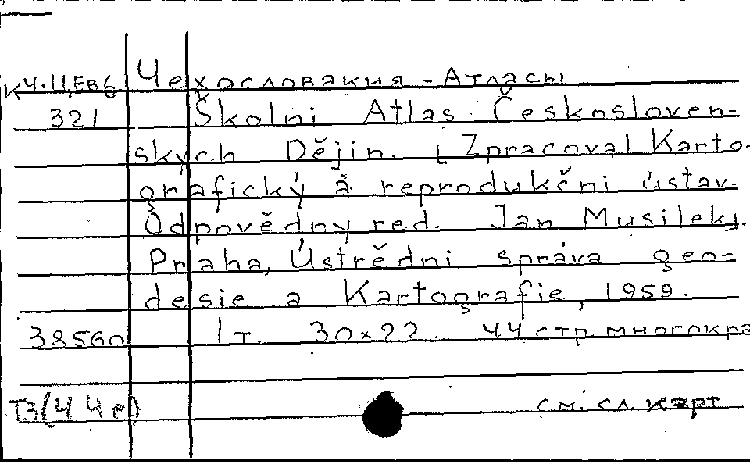 К Ч.11,Ев6 Чехословакия - Атласы
321 Školni Atlas Československých
Dějin. [Zpracoval Karto-
grafický a reprodukčni ústav.
Odpovědny red. Jan Musilek].
Praha, Ústrědni správa geo-
desie a Kartografie, 1959.
38560 1 т. 30×22. 44 стр. многокра
Т3(4Че) см. сл. карт